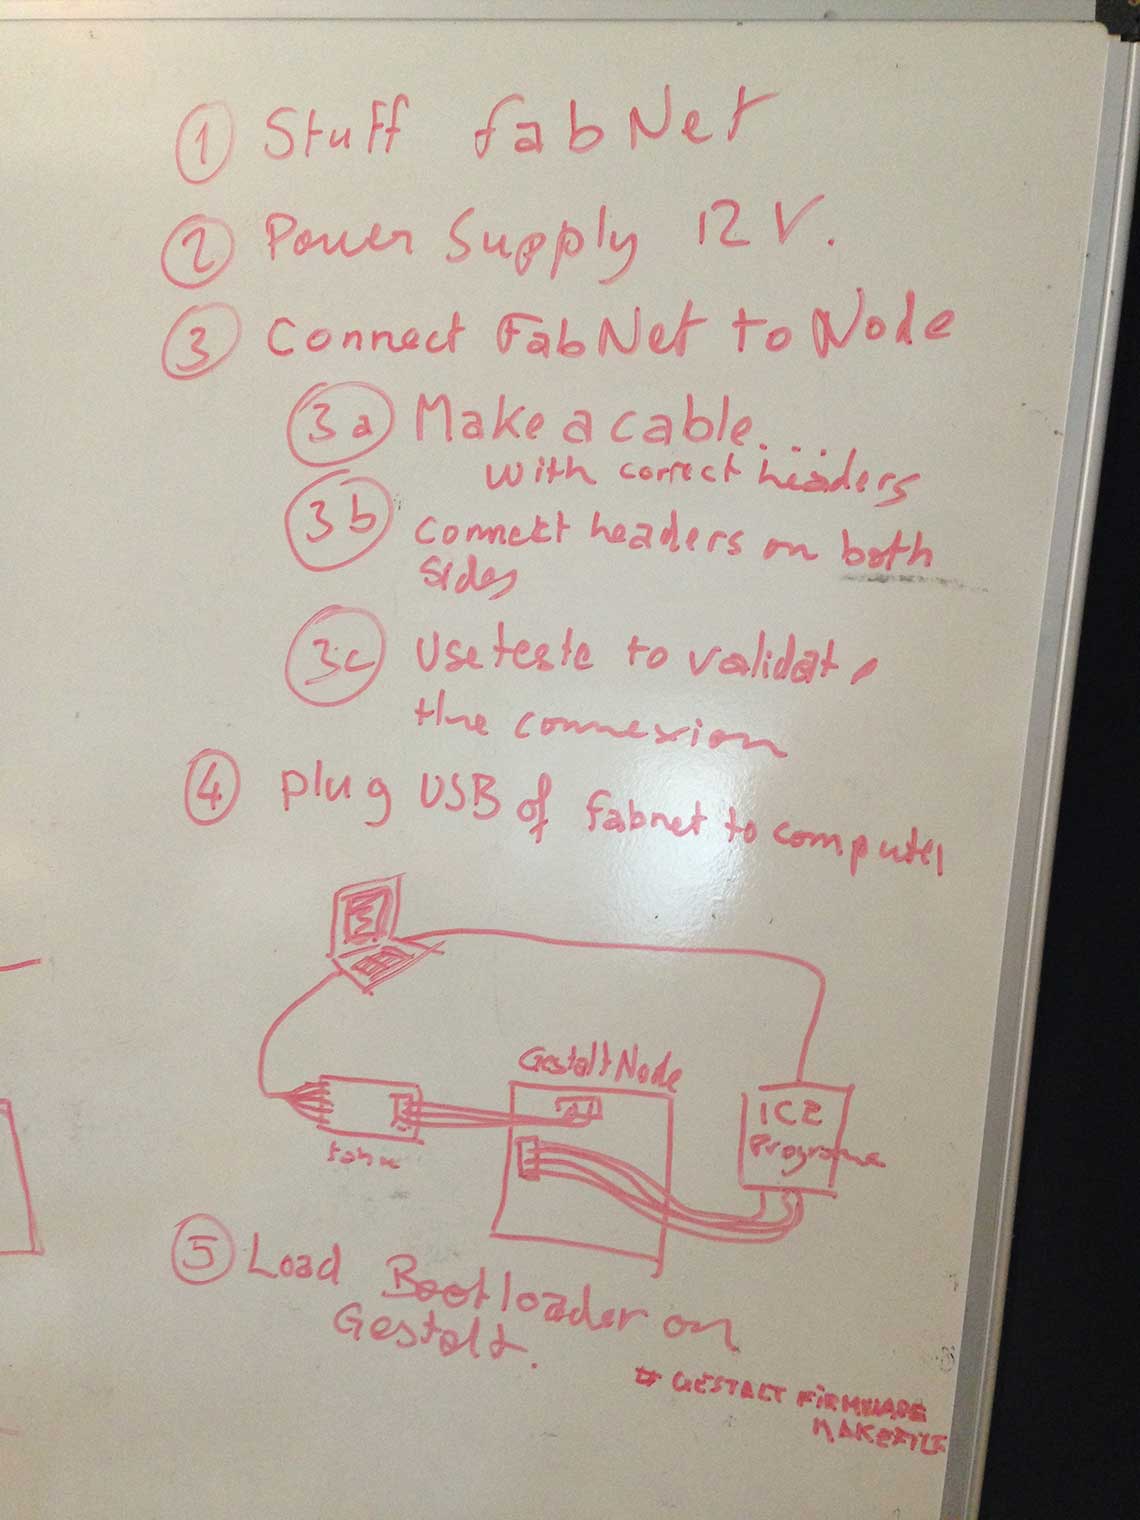 1 Stuff fabNet
2 Power Supply 12V.
3 Connect FabNet to Node
3a Make a cable...
with correct headers
3b connect headers on both
sides
3c Use teste to validate
the connexion
4 plug USB of fabnet to computer
Gestalt Node
ICE
Programe
5 Load Bootloader on
Gestalt.
# GESTALT FIRMWARE
MAKEFILE